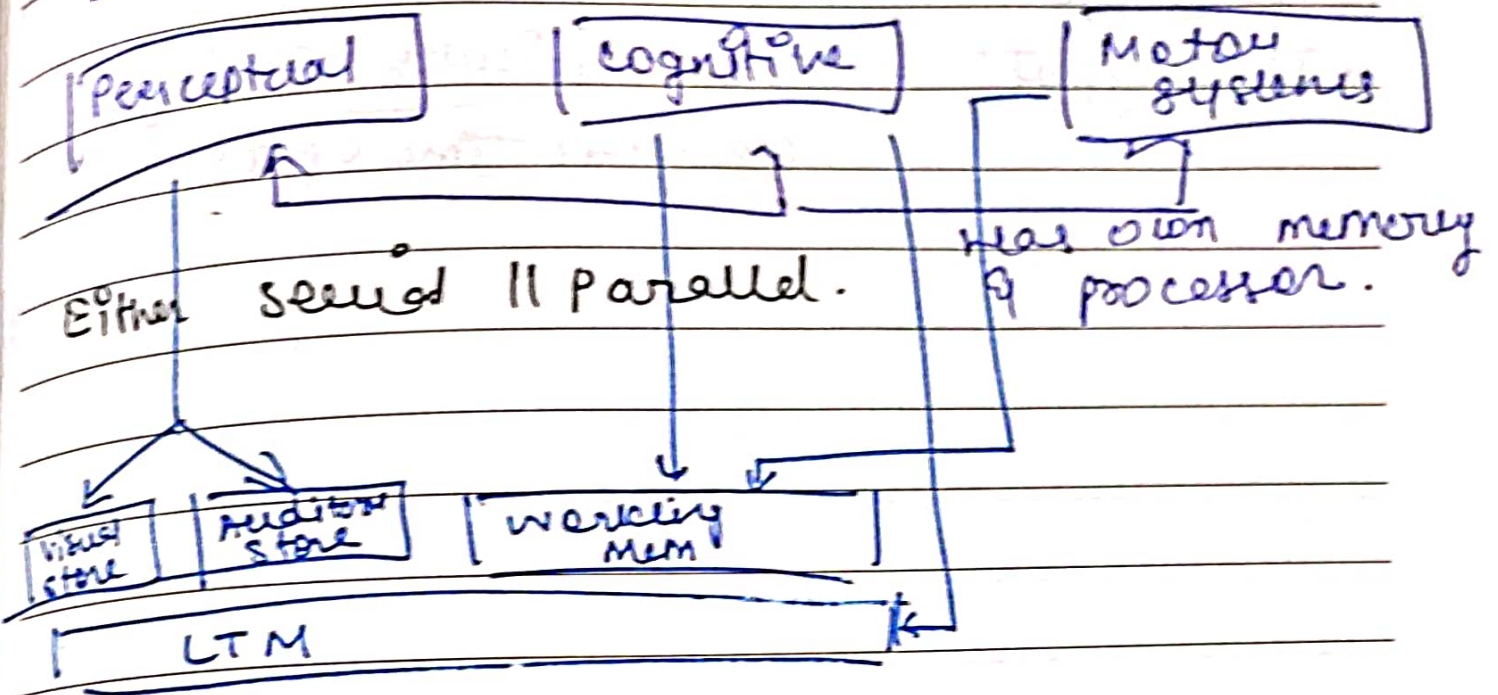 Perceptual
cognitive
Motor
systems
Has own memory
& processor.
Either serial || parallel.
Visual
store
Auditory
Store
Working
Mem
LTM